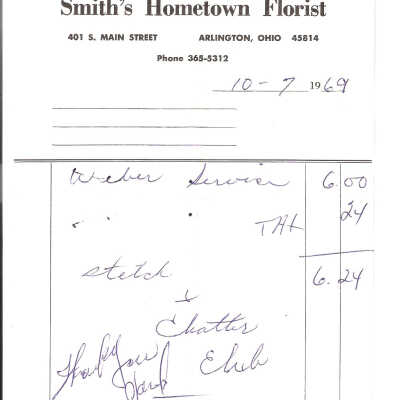 Smith's Hometown Florist
401 S. MAIN STREET ARLINGTON, OHIO 45814
Phone 365-5312
10-7 1969
Weber Service 6.00
" " TAX 24
Stitch 6.24
&
Chatter
Thank You Club
Paid